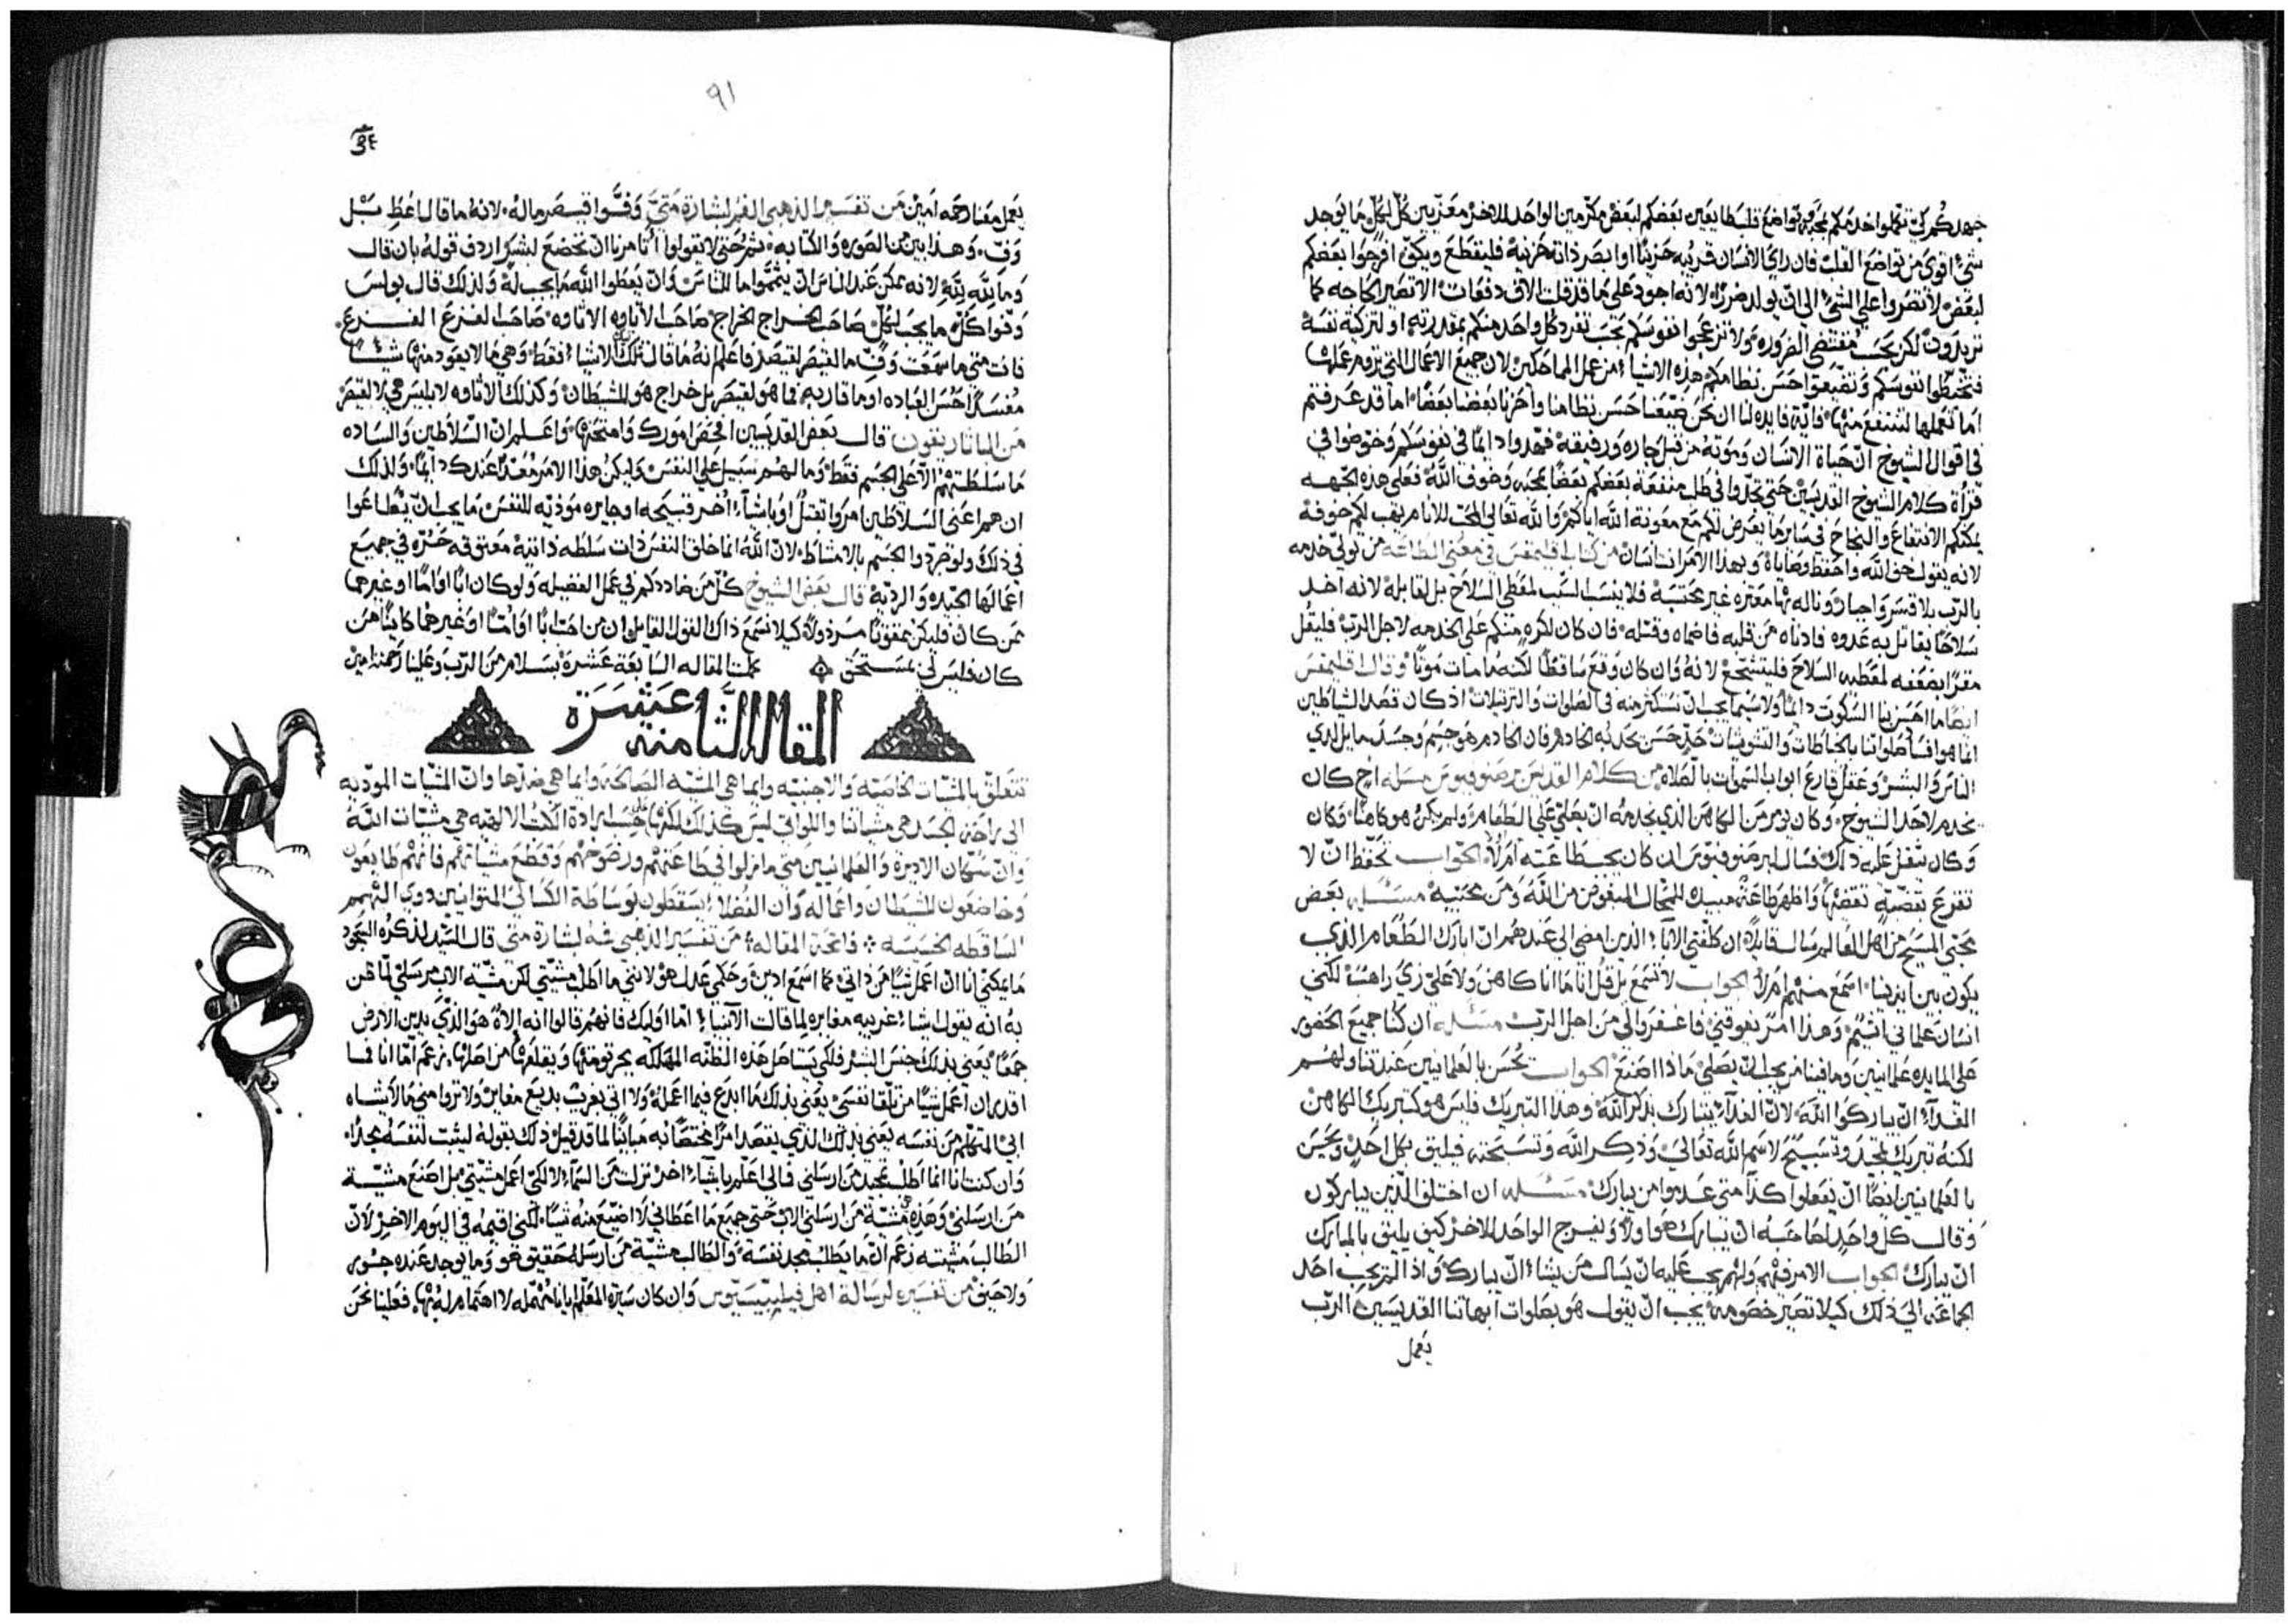 جهدكم كي تحملوا احدكم بمحبه وتواضع قلب طايعين بعضكم لبعض مكرمين الواحد للاخر معزيين كل لكل ما يوجد
شي اقوى من تواضع القلب فان راى الانسان قريبه حزينا او ابصر ذاته حزينة فليقطع ويكف افرجوا بعضكم
لبعض لا تصروا على الشي الى ان يولد ضررا لانه اجود على ما قد قلت الاف دفعات الا تصير الحاجه كما
تريدون لكن بحسب مقتضى الضروره ولا تزعجوا نفوسكم بحب تفرد كل واحد منكم بمقدرته او لتزكية نفسه
فتخبطوا نفوسكم وتضيعوا حسن نظامكم هذه الاشيا من عمل المماحكين لان جميع الاعمال التي نروم عملها
انما نعملها لننتفع منها فاية فايده لنا ان نحن ضيعنا حسن نظامنا واحزنا بعضنا بعضا اما قد عرفتم
في اقوال الشيوخ ان حياة الانسان وموته من قبل جاره ورفيقه فمهدوا دايما في نفوسكم وخوضوا في
قرأة كلام الشيوخ القديسين حتى تجدوا في طلب منفعة بعضكم بعضا بمحبه وخوف الله فعلى هذه الجهه
يمكنكم الانتفاع والنجاح في ساير ما يعرض لكم مع معونة الله اياكم والله تعالى المحب للانام يهب لكم خوفه
لانه يقول خف الله واحفظ وصاياه وبهذا الامر انت انسان من كتاب اقليمقس في معنى الطاعه من تولى خدمه
بالرب بلا قسر واجبار وناله بها معثره غير محتسبة فلا ينسب السبب لمعطي السلاح بل لقابله لانه اخذ
سلاحا يقاتل به عدوه فادناه من قلبه فاضماه وقتله فان كان اكره منكم على الخدمه لاجل الرب فليقل
مقرا بضعفه لمعطيه السلاح فليتشجع لانه وان كان وقع ساقطا لكنه ما مات موتا وقال اقليمقس
ايضا ما احسن بنا السكوت دايما ولا سيما يجب ان نستكثر منه في الصلوات والترتيلات اذ كان قصد الشياطين
انما هو افساد صلواتنا بالخباطات والتشويشات حذر حسن نحذر به الخادم فان الخادم هو جسم وجسد مايل لدي
الناس والبشر وعقل قارع ابواب السموات بالصلاه من كلام القديس برصنوفيوس مسله اخ كان
يخدم لاحد الشيوخ وكان يومر من الكاهن الذي يخدمه ان يصلي على الطعام ولم يكن هو كاهنا وكان
وكان يثقل عليه ذلك فسال ابرصنوفيوس ان كان يجب طاعته ام لا الجواب تحفظ ان لا
تقرع بقضية تقضيها واظهر طاعة مبيدك للمحال المبغوض من الله ومن محبيه مسئله بعض
محبي المسيح من اهل العالم سال قايلا ان كلفني الابا الذين امضي الى عندهم ان ابارك الطعام الذي
يكون بين ايدينا اسمع منهم ام لا الجواب لا تسمع بل قل انا ما انا كاهن ولا علي زي راهب لكني
انسان علماني اثيم وهذا امر يفوقني فاغفروا لي من اجل الرب مسئله ان كنا جميع الحضور
على المايده علمانيين وما فينا من يجب ان يصلي ماذا اصنع الجواب تحسن بالعلمانيين عند تناولهم
الغدا ان يباركوا الله لان الغدا يتبارك بذكر الله وهذا التبريك فليس هو كتبريك الكاهن
لكنه تبريك تمجيد وتسبيح لاسم الله تعالى وذكر الله وتسبحته فيليق بكل احد ويحسن
بالعلمانيين ايضا ان يفعلوا كذا متى عدموا من يبارك مسئله ان اختلف الذين يباركون
وقال كل واحد لصاحبه ان يبارك هو اولا ويفسح الواحد للاخر كيف يليق بالمبارك
ان يبارك الجواب الامر فيهم ولهم يجب عليه ان يسال من يشا ان يبارك واذا لم يجب احد
الجماعه الى ذلك كيلا تصير خصومه يجب ان يقول هو بصلوات ابهاتنا القديسين الرب
يعمل
٩١
يعمل معنا رحمه امين من تفسير الذهبي الفم لبشارة متى وفوا قيصر ماله لانه ما قال اعط بل
وف وهذا بين من الصوره والكتابه ثم حتى لا يقولوا أتامرنا ان نخضع لبشر اردف قوله بان قال
وما لله لله لانه ممكن عند الناس ان يتمموا ما للناس وان يعطوا الله ما يجب له ولذلك قال بولس
وفوا كل ما يجب لكل صاحب الخراج الخراج صاحب الاتاوه الاتاوه صاحب الفزع الفزع
فانت متى ما سمعت وف ما لقيصر لقيصر فاعلم انه ما قال تلك الاشيا فقط وهي ما لا يعود منها شيئا
مفسدا حسن العباده او ما قاربه فما هو لقيصر بل خراج هو للشيطان وكذلك الاتاوه لابليس هي لا لقيصر
من الباتاريقون قال بعض القديسين افحص امورك وامتحنها واعلم ان السلاطين والساده
ما سلطتهم الا على الجسم فقط وما لهم سبيل على النفس وليكن هذا الامر معدا عندك دايما ولذلك
ان هم اعني السلاطين امروا بقتل او باشيا اخر قبيحه او جايره موذيه للنفس ما يجب ان يطاعوا
في ذلك ولو جردوا الجسم بالامشاط لان الله انما خلق النفس ذات سلطه ذاتية معتوقه حره في جميع
اعمالها الجيده والرديه قال بعض الشيوخ كل من ضاددكم في عمل الفضيله ولو كان ابا او اما او غيرهما
ممن كان فليكن ممقوتا مرذولا كيلا نسمع ذاك القول القايل ان من احب ابا او اما او غيرهما كاينا من
كان فليس لي بمستحق كملت المقاله السابعة عشرة بسلام من الرب وعلينا رحمته امين
المقالة الثامنه عشرة
تتعلق بالمشيات الخاصه والاجنبيه وايما هي المشيه الصالحه وايما هي ضدها وان المشيات المودية
الى راحة الجسد هي مشياتنا واللواتي ليس كذلك لكنها حسب ارادة الكتب الالهيه هي مشيات الله
وان سكان الاديرة والعلمانيين متى ما تزلوا في طاعتهم ورضوخهم وقطع مشياتهم فانهم طايعون
وخاضعون للشيطان واعماله وان الفضلا يسقطون بوساطة الكسالى المتوانيين ذوي الهمم
الساقطه الخسيسه فاتحة المقاله من تفسير الذهبي فمه لبشارة متى قال السيد لذكره السجود
ما يمكنني انا ان اعمل شيا من ذاتي كما اسمع ادين وحكمي عدل هو لانني ما اطلب مشيتي لكن مشية الاب مرسلي لما ظن
به انه يقول اشيا غريبه مغايره لما قالت الانبيا اما اوليك فانهم قالوا انه الاه هو الذي يدين الارض
جمعا يعني بذلك جنس البشر فلكي يستاصل هذه الظنه المهلكه بجرثومتها ويقلعها من اصلها زعم اما انا فما
اقدر ان اعمل شيا من تلقا نفسي يعني بذلك ما ابدع فيما اعمله ولا اتي بغريب بديع مغاير ولا تروا مني ما لا يشاه
ابي المتكلم من نفسه يعني بذلك الذي يقصد امرا مختصا به مباينا لما قد قيل ذلك بقوله ليثبت لنفسه مجدا
وان كنت انا انما اطلب مجد من ارسلني فالى اعلم باشيا اخر نزلت من السماء لا لكي اعمل مشيتي بل اصنع مشية
من ارسلني وهذه هي مشية من ارسلني الاب حتى جميع ما اعطاني لا اضيع منه شيا لكني اقيمه في اليوم الاخير لان
الطالب مشيته زعم ان ما يطلب مجد نفسه والطالب مشية من ارسله حقيقي هو وما يوجد عنده جور
ولا حيف من تفسيره لرسالة اهل فيليبيسيوس وان كان سيرة المعلم ايانا مهمله لا اهتمام له بها فعلينا نحن